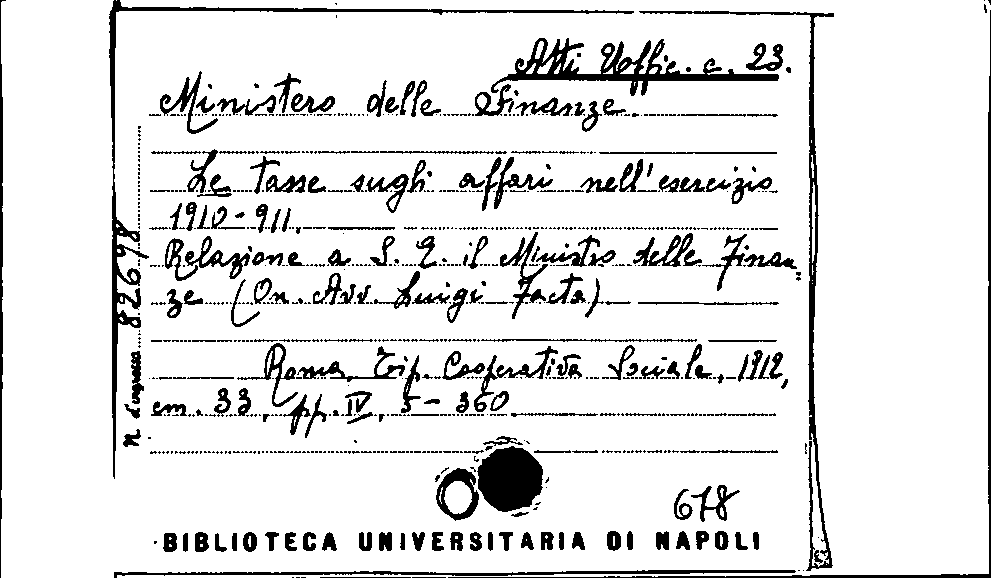 Atti Uffic. c. 23.
Ministero delle Finanze.
Le tasse sugli affari nell'esercizio
1910-911.
Relazione a S. E. il Ministro delle Finan„
ze (On. Avv. Luigi Facta).
Roma, Tip. Cooperativa Sociale, 1912,
cm. 33, pp. IV, 5-360.
n. d'ingresso 82698
678
BIBLIOTECA UNIVERSITARIA DI NAPOLI